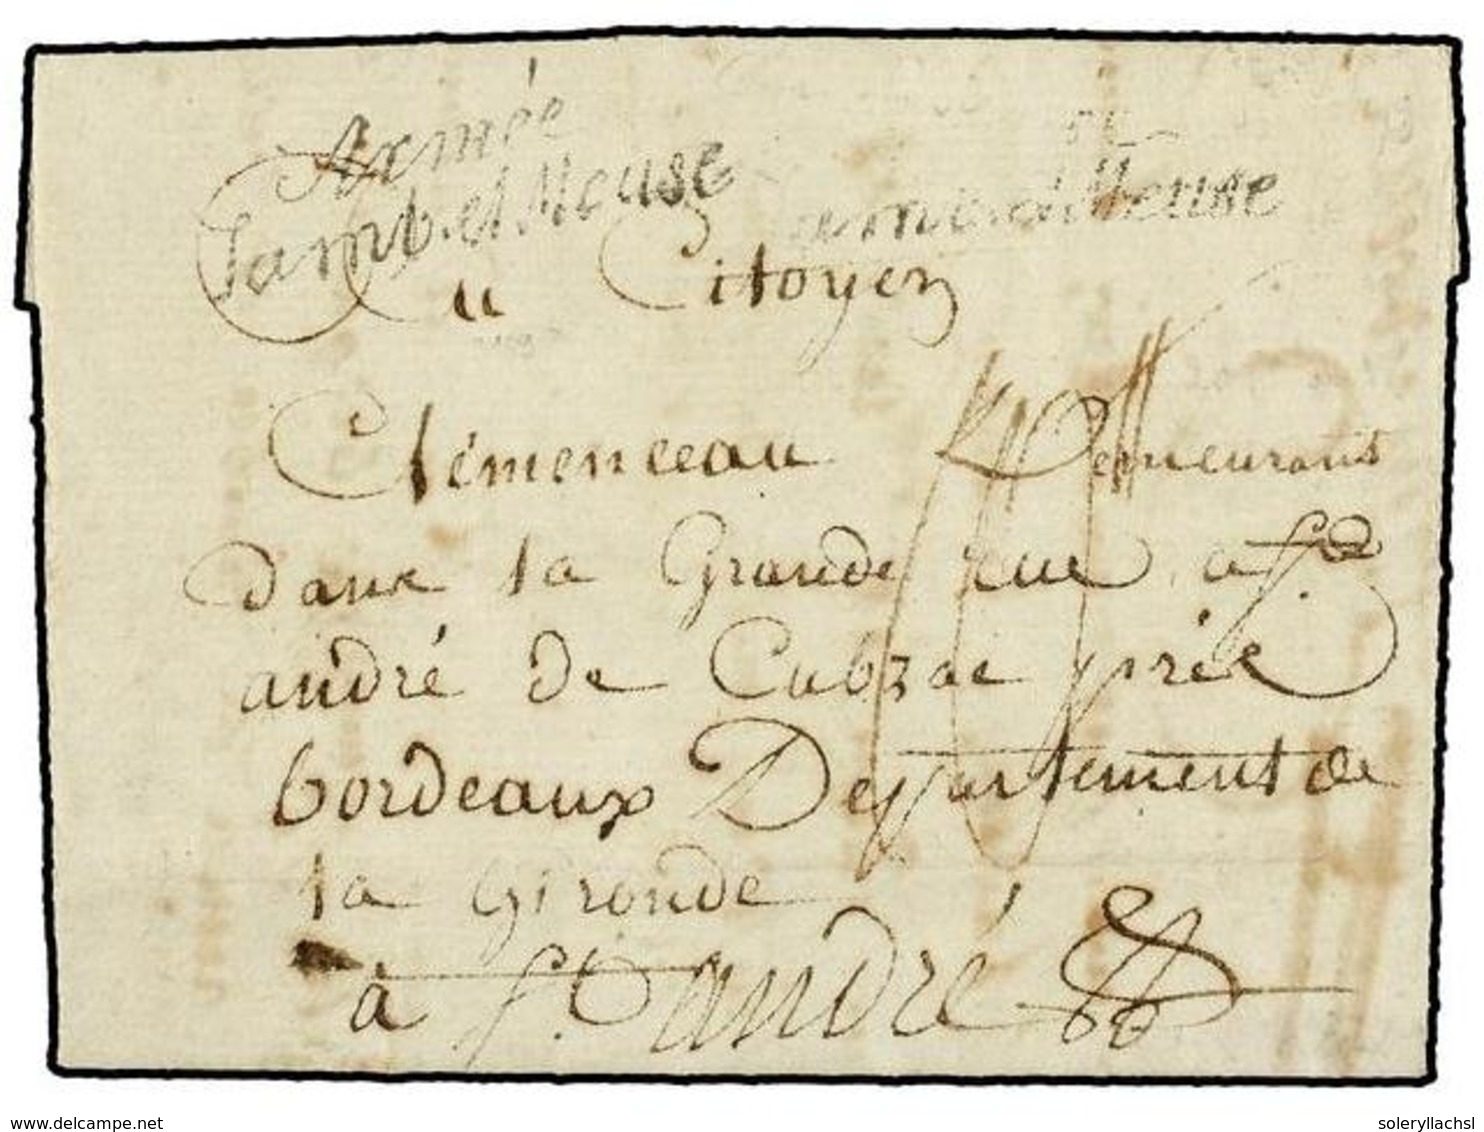 Armée
Samb. et Meuse
Meuse
au Citoyen
Clémenceau Demeurant
dans la Grande rue a St
andré de Cubzac près
bordeaux Departement de
la Gironde
à St andré
www.delcampe.net
soleryllachsl